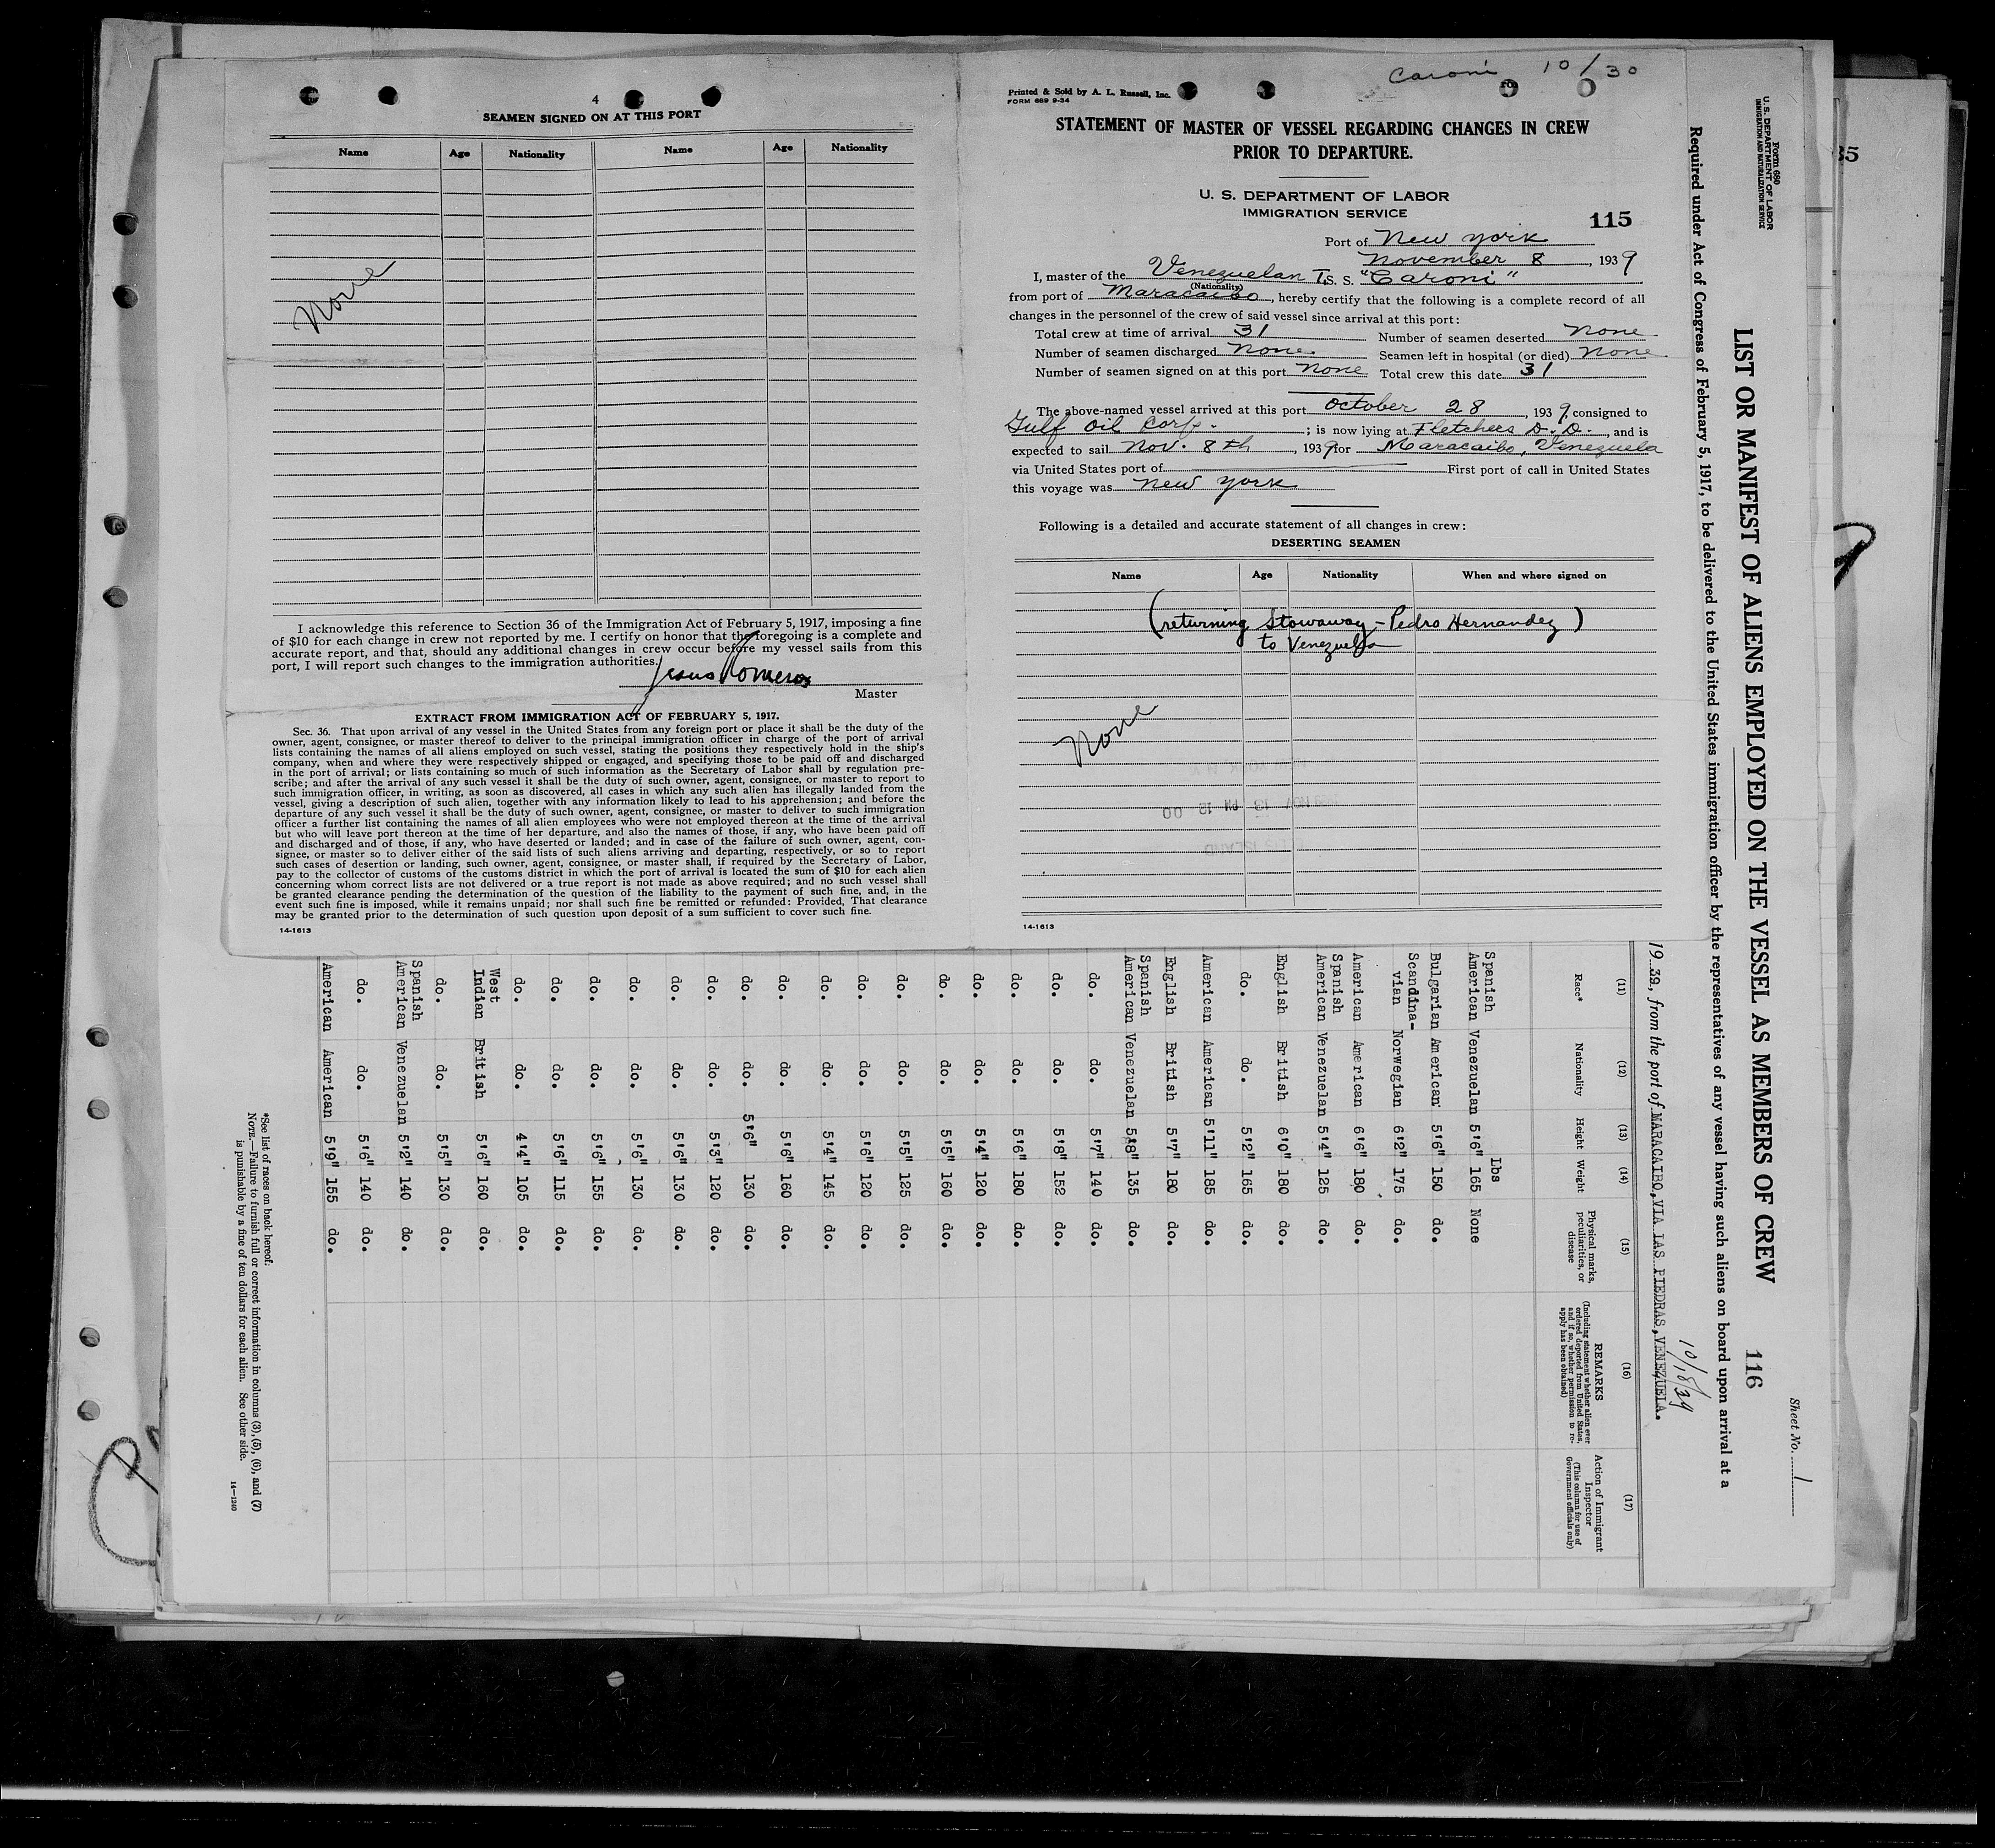 4
SEAMEN SIGNED ON AT THIS PORT
Name Age Nationality Name Age Nationality
None
I acknowledge this reference to Section 36 of the Immigration Act of February 5, 1917, imposing a fine
of $10 for each change in crew not reported by me. I certify on honor that the foregoing is a complete and
accurate report, and that, should any additional changes in crew occur before my vessel sails from this
port, I will report such changes to the immigration authorities.
Jesus Romeros
Master
EXTRACT FROM IMMIGRATION ACT OF FEBRUARY 5, 1917.
Sec. 36. That upon arrival of any vessel in the United States from any foreign port or place it shall be the duty of the
owner, agent, consignee, or master thereof to deliver to the principal immigration officer in charge of the port of arrival
lists containing the names of all aliens employed on such vessel, stating the positions they respectively hold in the ship's
company, when and where they were respectively shipped or engaged, and specifying those to be paid off and discharged
in the port of arrival; or lists containing so much of such information as the Secretary of Labor shall by regulation pre-
scribe; and after the arrival of any such vessel it shall be the duty of such owner, agent, consignee, or master to report to
such immigration officer, in writing, as soon as discovered, all cases in which any such alien has illegally landed from the
vessel, giving a description of such alien, together with any information likely to lead to his apprehension; and before the
departure of any such vessel it shall be the duty of such owner, agent, consignee, or master to deliver to such immigration
officer a further list containing the names of all alien employees who were not employed thereon at the time of the arrival
but who will leave port thereon at the time of her departure, and also the names of those, if any, who have been paid off
and discharged and of those, if any, who have deserted or landed; and in case of the failure of such owner, agent, con-
signee, or master so to deliver either of the said lists of such aliens arriving and departing, respectively, or so to report
such cases of desertion or landing, such owner, agent, consignee, or master shall, if required by the Secretary of Labor,
pay to the collector of customs of the customs district in which the port of arrival is located the sum of $10 for each alien
concerning whom correct lists are not delivered or a true report is not made as above required; and no such vessel shall
be granted clearance pending the determination of the question of the liability to the payment of such fine, and, in the
event such fine is imposed, while it remains unpaid; nor shall such fine be remitted or refunded: Provided, That clearance
may be granted prior to the determination of such question upon deposit of a sum sufficient to cover such fine.
14-1613
Caroni 10/30
Printed & Sold by A. L. Russell, Inc.
FORM 689 9-34
STATEMENT OF MASTER OF VESSEL REGARDING CHANGES IN CREW
PRIOR TO DEPARTURE.
U. S. DEPARTMENT OF LABOR
IMMIGRATION SERVICE
115
Port of New York
November 8, 1939
I, master of the Venezuelan T.S. S. "Caroni"
(Nationality)
from port of Maracaibo, hereby certify that the following is a complete record of all
changes in the personnel of the crew of said vessel since arrival at this port:
Total crew at time of arrival 31 Number of seamen deserted None
Number of seamen discharged None. Seamen left in hospital (or died) None
Number of seamen signed on at this port None Total crew this date 31
The above-named vessel arrived at this port October 28, 1939, consigned to
Gulf Oil Corp.; is now lying at Fletchers D.D., and is
expected to sail Nov. 8th, 1939 for Maracaibo, Venezuela
via United States port of First port of call in United States
this voyage was New York
Following is a detailed and accurate statement of all changes in crew:
DESERTING SEAMEN
Name Age Nationality When and where signed on
(returning Stowaway - Pedro Hernandez)
to Venezuela
None
14-1613
Form 680
U. S. DEPARTMENT OF LABOR
IMMIGRATION AND NATURALIZATION SERVICE
Sheet No. 1
LIST OR MANIFEST OF ALIENS EMPLOYED ON THE VESSEL AS MEMBERS OF CREW 116
Required under Act of Congress of February 5, 1917, to be delivered to the United States immigration officer by the representatives of any vessel having such aliens on board upon arrival at a
10/18/39
1939, from the port of MARACAIBO, VIA LAS PIEDRAS, VENEZUELA.
(11) (12) (13) (14) (15) (16) (17)
Race* Nationality Height Weight Physical marks, peculiarities, or disease REMARKS (Including statement whether alien ever ordered deported from United States, and if so, whether permission to re-apply has been obtained) Action of Immigrant Inspector (This column for use of Government officials only)
Lbs
Spanish
American Venezuelan 5'6" 165 None
Bulgarian American 5'6" 150 do.
Scandina-
vian Norwegian 6'2" 175 do.
American American 6'6" 180 do.
Spanish
American Venezuelan 5'4" 125 do.
English British 6'0" 180 do.
do. do. 5'2" 165 do.
American American 5'11" 185 do.
English British 5'7" 180 do.
Spanish
American Venezuelan 5'8" 135 do.
do. do. 5'7" 140 do.
do. do. 5'8" 152 do.
do. do. 5'6" 180 do.
do. do. 5'4" 120 do.
do. do. 5'5" 160 do.
do. do. 5'5" 125 do.
do. do. 5'6" 120 do.
do. do. 5'4" 145 do.
do. do. 5'6" 160 do.
do. do. 5'6" 130 do.
do. do. 5'3" 120 do.
do. do. 5'6" 130 do.
do. do. 5'6" 130 do.
do. do. 5'6" 155 do.
do. do. 5'6" 115 do.
do. do. 4'4" 105 do.
West
Indian British 5'6" 160 do.
do. do. 5'5" 130 do.
Spanish
American Venezuelan 5'2" 140 do.
do. do. 5'6" 140 do.
American American 5'9" 155 do.
*See list of races on back hereof.
NOTE.—Failure to furnish full or correct information in columns (3), (5), (6), and (7)
is punishable by a fine of ten dollars for each alien. See other side.
14—1240
35